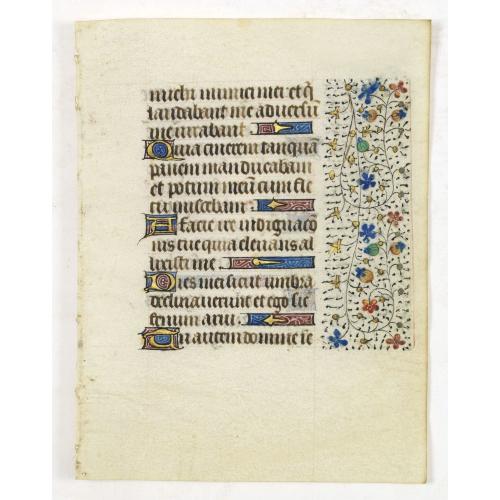 michi inimici mei et q̃
laudabant me adversũ
me iurabant
Quia cinerem tanquã
panem manducabam
et potum meũ cum fle
tu miscebam
A facie ire indignacõ
nis tue quia elevans al
lisisti me
Dies mei sicut umbra
declinaverunt et ego sic
fenum arui
Tu autem domine ĩe